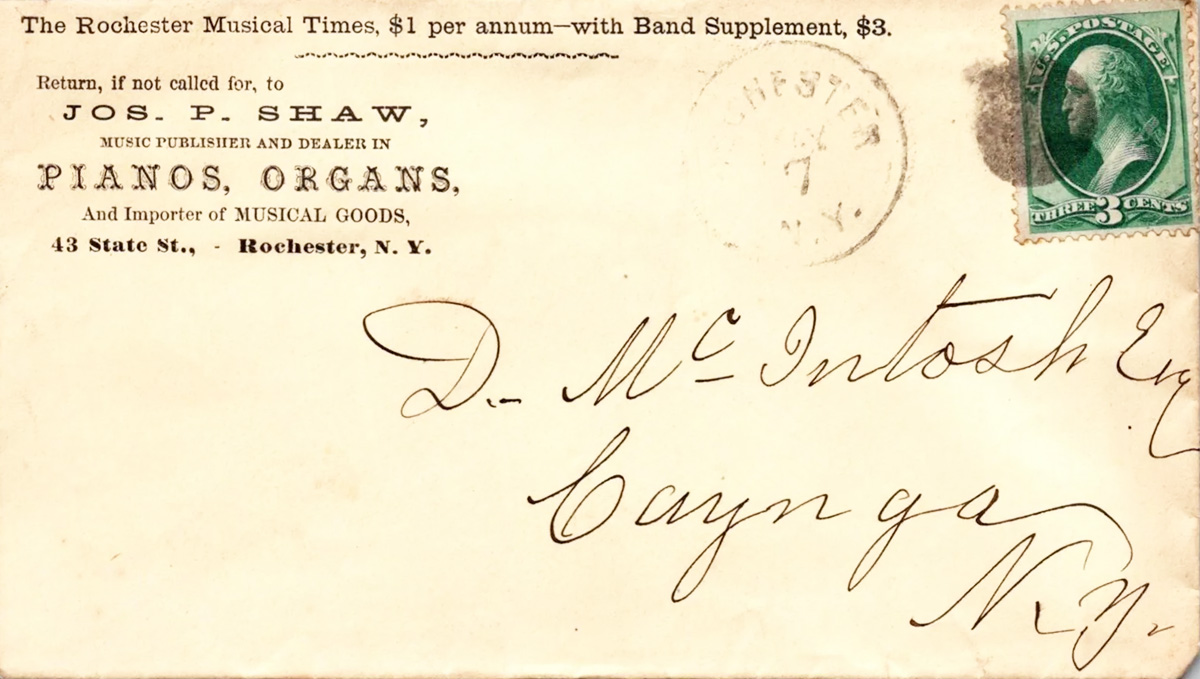 The Rochester Musical Times, $1 per annum—with Band Supplement, $3.
Return, if not called for, to
JOS. P. SHAW,
MUSIC PUBLISHER AND DEALER IN
PIANOS, ORGANS,
And Importer of MUSICAL GOODS,
43 State St., - Rochester, N. Y.
CHESTER
7
N.Y.
U.S. POSTAGE
THREE 3 CENTS
D. Mc Intosh Esq
Cayuga
N.Y.